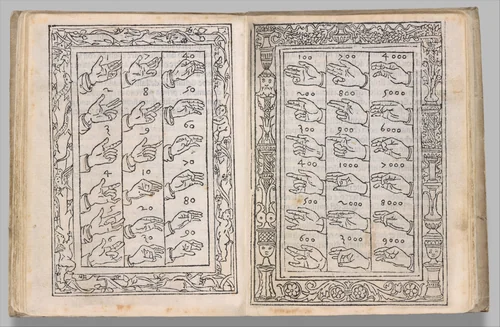 40
2 8 50
3 9 60
70
4 10 80
100 700 4000
200 800 5000
300 900 6000
400 1000 7000
500 2000 8000
600 3000 9000